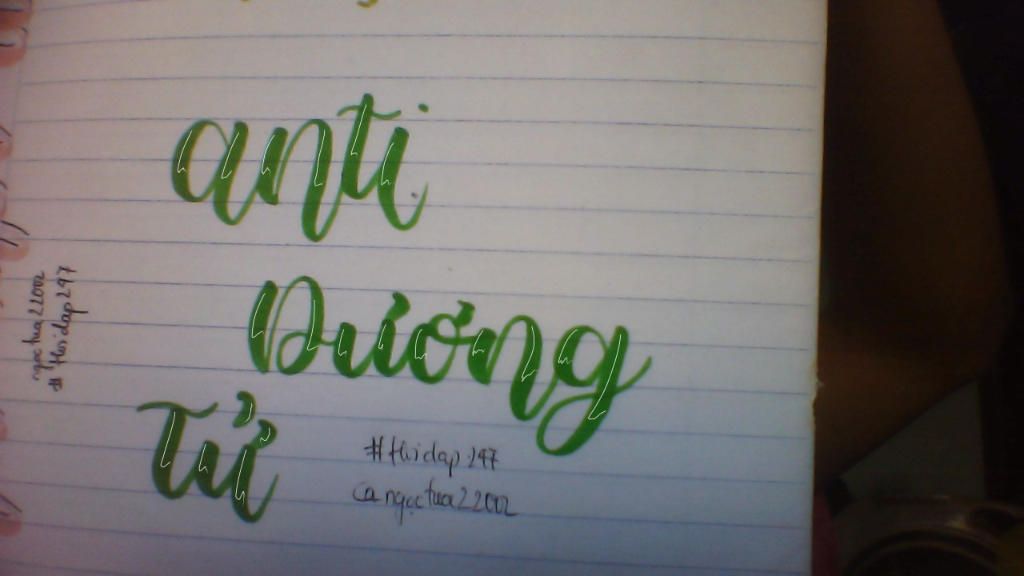 anti
Dương
Tử
#hoidap247
@ngoctua22002
ngoctua22002
#hoidap247